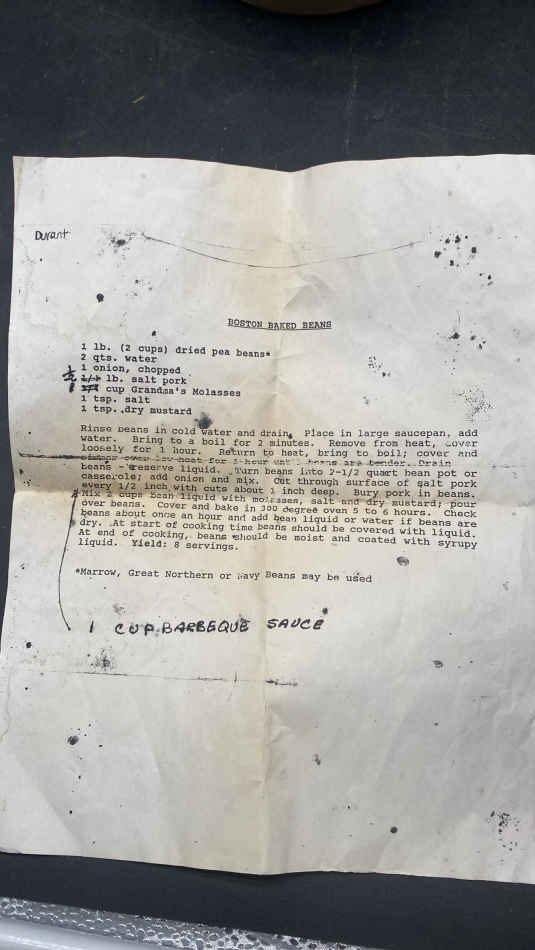 Durant
BOSTON BAKED BEANS
1 lb. (2 cups) dried pea beans*
2 qts. water
1 onion, chopped
1/2 lb. salt pork
1 cup Grandma's Molasses
1 tsp. salt
1 tsp. dry mustard
Rinse beans in cold water and drain. Place in large saucepan, add
water. Bring to a boil for 2 minutes. Remove from heat, cover
loosely for 1 hour. Return to heat, bring to boil; cover and
simmer over low heat for 1 hour until beans are tender. Drain
beans - reserve liquid. Turn beans into 2-1/2 quart bean pot or
casserole; add onion and mix. Cut through surface of salt pork
every 1/2 inch with cuts about 1 inch deep. Bury pork in beans.
Mix 2 cups bean liquid with molasses, salt and dry mustard; pour
over beans. Cover and bake in 300 degree oven 5 to 6 hours. Check
beans about once an hour and add bean liquid or water if beans are
dry. At start of cooking time beans should be covered with liquid.
At end of cooking, beans should be moist and coated with syrupy
liquid. Yield: 8 servings.
*Marrow, Great Northern or Navy Beans may be used
1 CUP BARBEQUE SAUCE